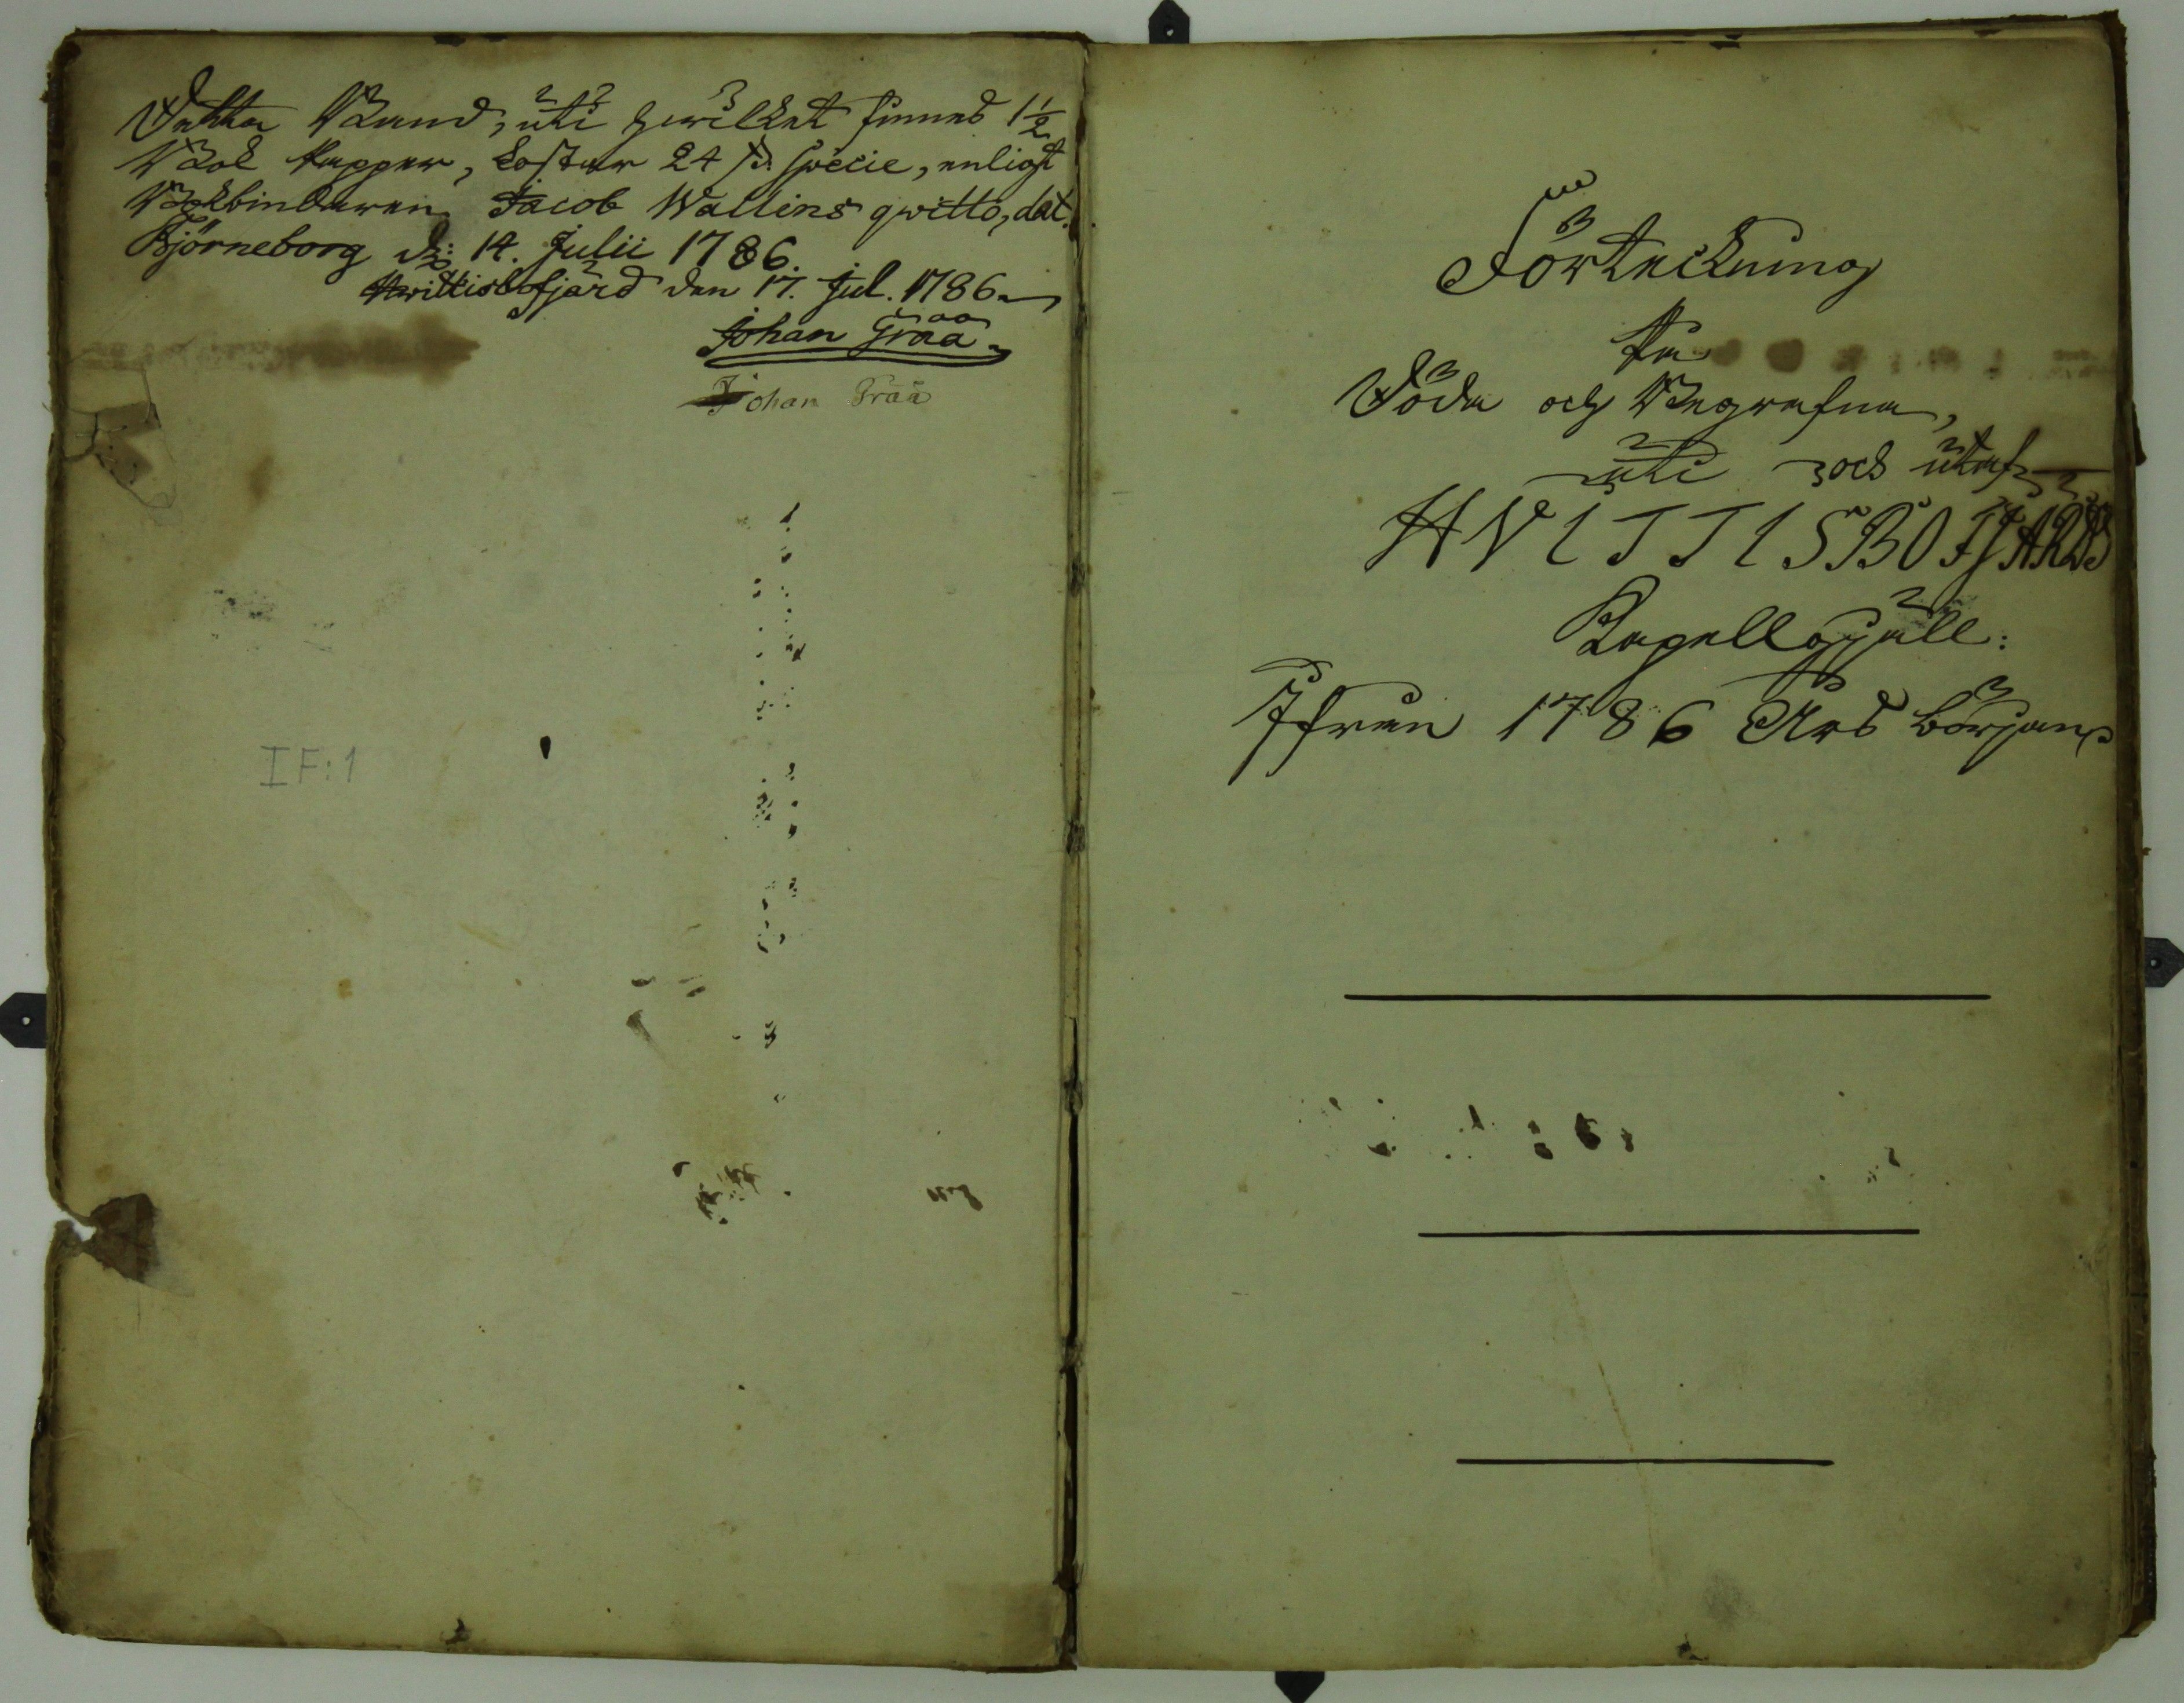 Detta Band, uti hwilket finnes 1 1/2
Bok Papper, kostar 24 ß Specie, enligt
Bokbindaren Jacob Wallins qwitto, dat.
Björneborg d: 14. Julii 1786.
Hwittisbofjärd den 17. Jul. 1786.
Johan Gråå
Johan Gråå
IF:1
Förteckning
På
Döda och Begrafna,
uti och utaf
HVITTISBOFJARDS
Kapellgjäll:
Ifrån 1786 Års början